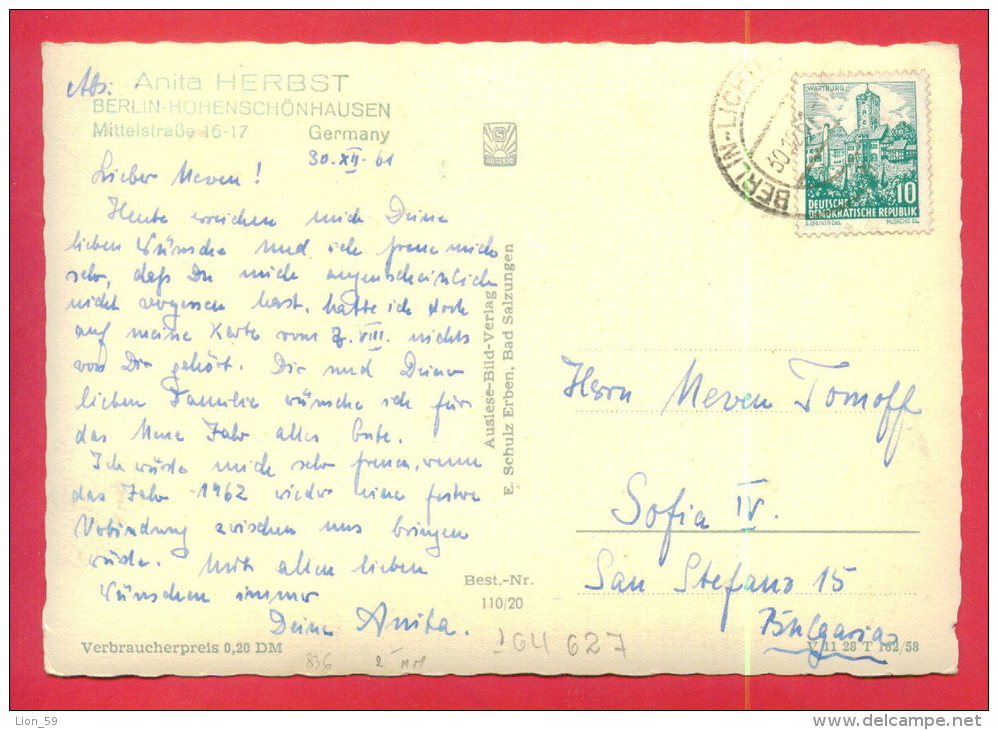 Abs: Anita HERBST
BERLIN-HOHENSCHÖNHAUSEN
Mittelstraße 16-17 Germany
30. XII. 61
Lieber Neven!
Heute erreichen mich Deine
lieben Wünsche und ich freue mich
sehr, daß Du mich augenscheinlich
nicht vergessen hast, hatte ich doch
auf meine Karte vom 7. VIII. nichts
von Dir gehört. Dir und Deiner
lieben Familie wünsche ich für
das Neue Jahr alles Gute.
Ich würde mich sehr freuen, wenn
das Jahr 1962 wieder eine feste
Verbindung zwischen uns bringen
würde. Mit allen lieben
Wünschen immer
Deine Anita.
Verbraucherpreis 0,20 DM
AUSLESE
Auslese-Bild-Verlag
E. Schulz Erben, Bad Salzungen
Best.-Nr.
110/20
164 627
836
BERLIN-LICH
WARTBURG
10
DEUTSCHE
DEMOKRATISCHE REPUBLIK
Herrn Neven Tomoff
Sofia IV.
San Stefano 15
Bulgaria
V 11 28 T 162/58
Lion_59
delcampe.net